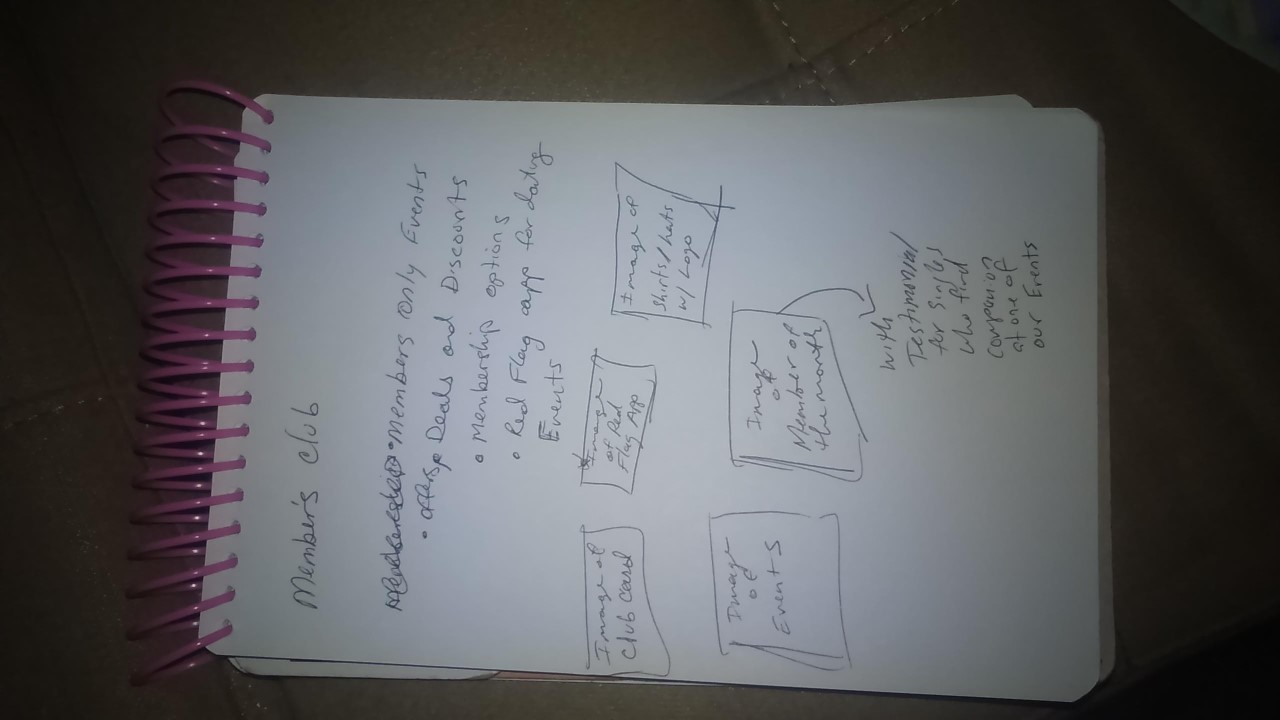 Member's club
• Members only Events
• offers, Deals and Discounts
• Membership options
• Red Flag app for dating
Events
Image of
Club Card
Image
of Red
Flag App
Image of
shirts/hats
w/ Logo
Image
of
Events
Image
of
Member of
the month
with
Testimonial
for singles
who find
companion
at one of
our Events